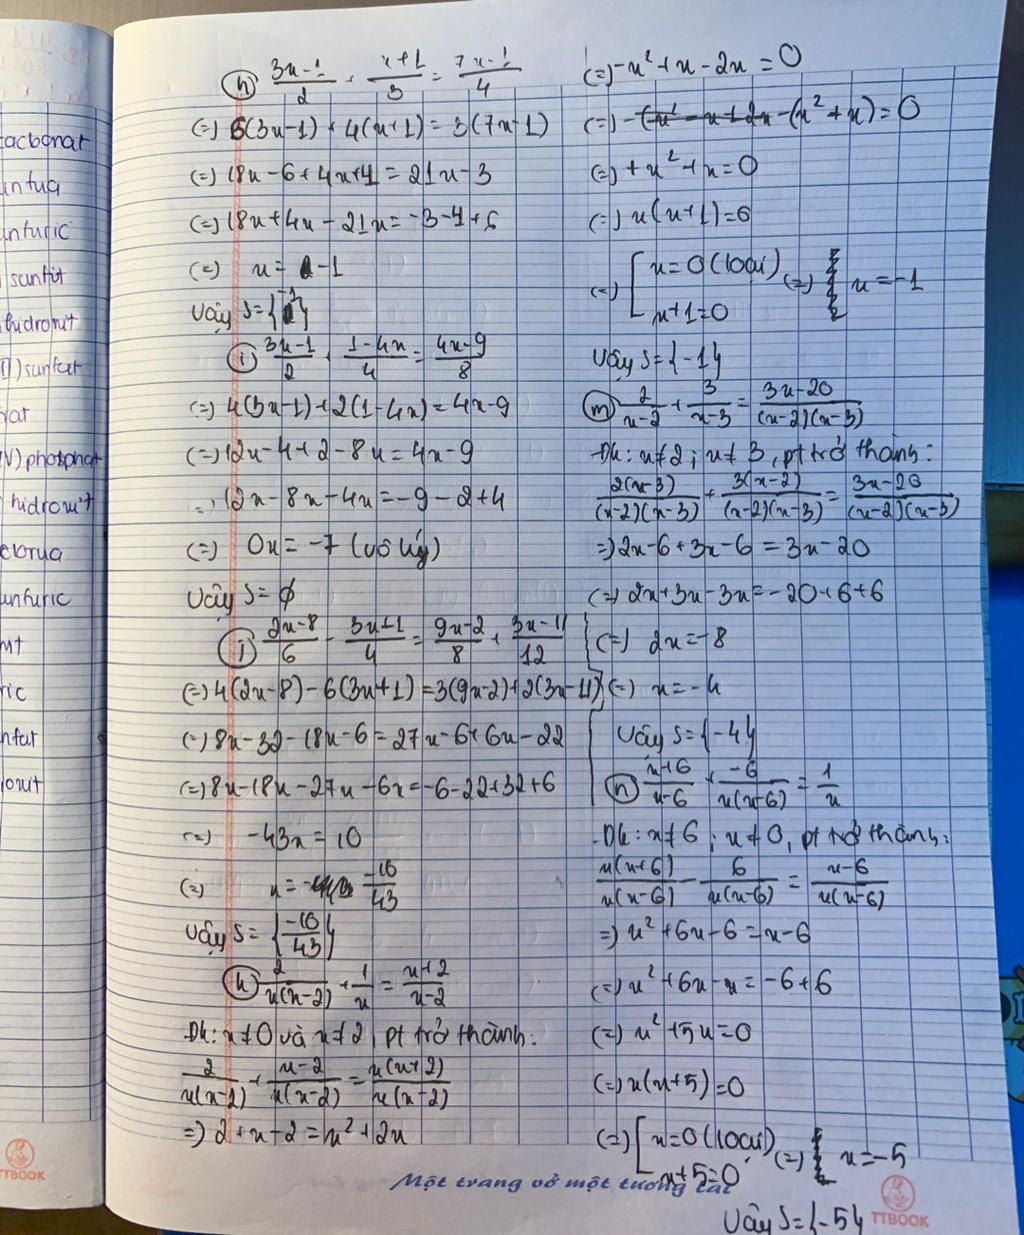 cacbonat
unfua
unfuric
sunfit
hidroxit
II) sunfat
rat
IV) phosphat
hidroxit
clorua
unfuric
ric
nfat
oxit
TTBOOK
h) (3x-1)/2 + (x+1)/3 = (7x-1)/4
(=) 6(3x-1) + 4(x+1) = 3(7x-1)
(=) 18x-6+4x+4 = 21x-3
(=) 18x+4x-21x = -3-4+6
(=) x = -1
Vậy S={-1}
i) (3x-1)/2 + (1-4x)/4 = (4x-9)/8
(=) 4(3x-1)+2(1-4x) = 4x-9
(=) 12x-4+2-8x = 4x-9
12x-8x-4x = -9-2+4
(=) 0x = -7 (vô lý)
Vậy S= ∅
j) (2x-8)/6 - (3x+1)/4 = (9x-2)/8 + (3x-11)/12
(=) 4(2x-8)-6(3x+1) = 3(9x-2)+2(3x-11)
(=) 8x-32-18x-6 = 27x-6+6x-22
(=) 8x-18x-27x-6x = -6-22+32+6
(=) -43x = 10
(=) x = -10/43
Vậy S= {-10/43}
k) 2/(x(x-2)) + 1/x = (x+2)/(x-2)
Đk: x≠0 và x≠2, pt trở thành:
2/(x(x-2)) + (x-2)/(x(x-2)) = x(x+2)/(x(x-2))
=) 2+x-2 = x²+2x
(=) -x²+x-2x = 0
(=) -(x²+x) = 0
(=) +x²+x = 0
(=) x(x+1)=0
(=) [ x=0 (loại)
x+1=0 (=) x=-1
Vậy S={-1}
m) 2/(x-2) + 3/(x-3) = (3x-20)/((x-2)(x-3))
Đk: x≠2; x≠3, pt trở thành:
2(x-3)/((x-2)(x-3)) + 3(x-2)/((x-2)(x-3)) = (3x-20)/((x-2)(x-3))
=) 2x-6+3x-6 = 3x-20
(=) 2x+3x-3x = -20+6+6
(=) 2x = -8
(=) x = -4
Vậy S={-4}
n) (x+6)/(x-6) + -6/(x(x-6)) = 1/x
Đk: x≠6; x≠0, pt trở thành:
x(x+6)/(x(x-6)) - 6/(x(x-6)) = (x-6)/(x(x-6))
=) x²+6x-6 = x-6
(=) x²+6x-x = -6+6
(=) x²+5x = 0
(=) x(x+5)=0
(=) [ x=0 (loại)
x+5=0 (=) x=-5
Một trang vở một tương lai
Vậy S={-5}
TTBOOK